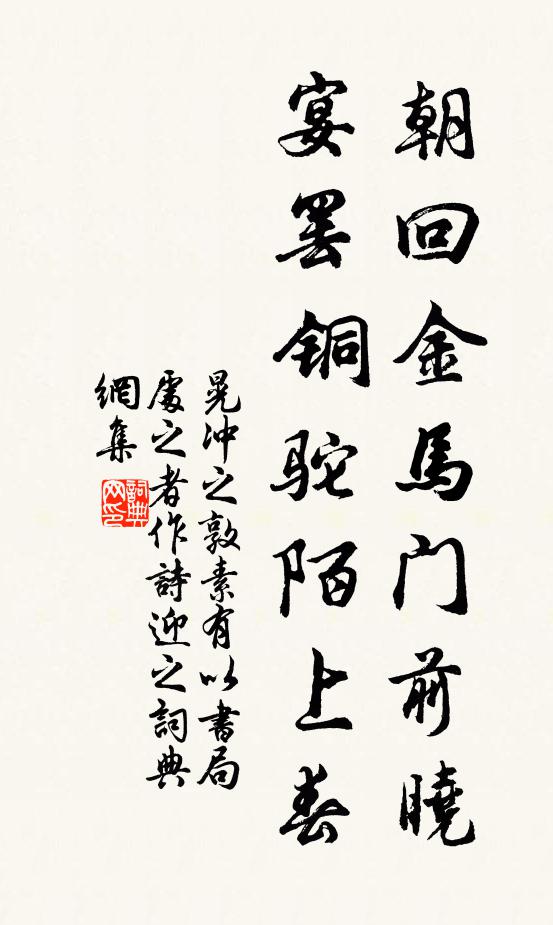 朝回金馬门前曉
宴罢铜驼陌上春
晃冲之敦素有以書局
處之者作詩迎之詞典
網集
詞典
网印